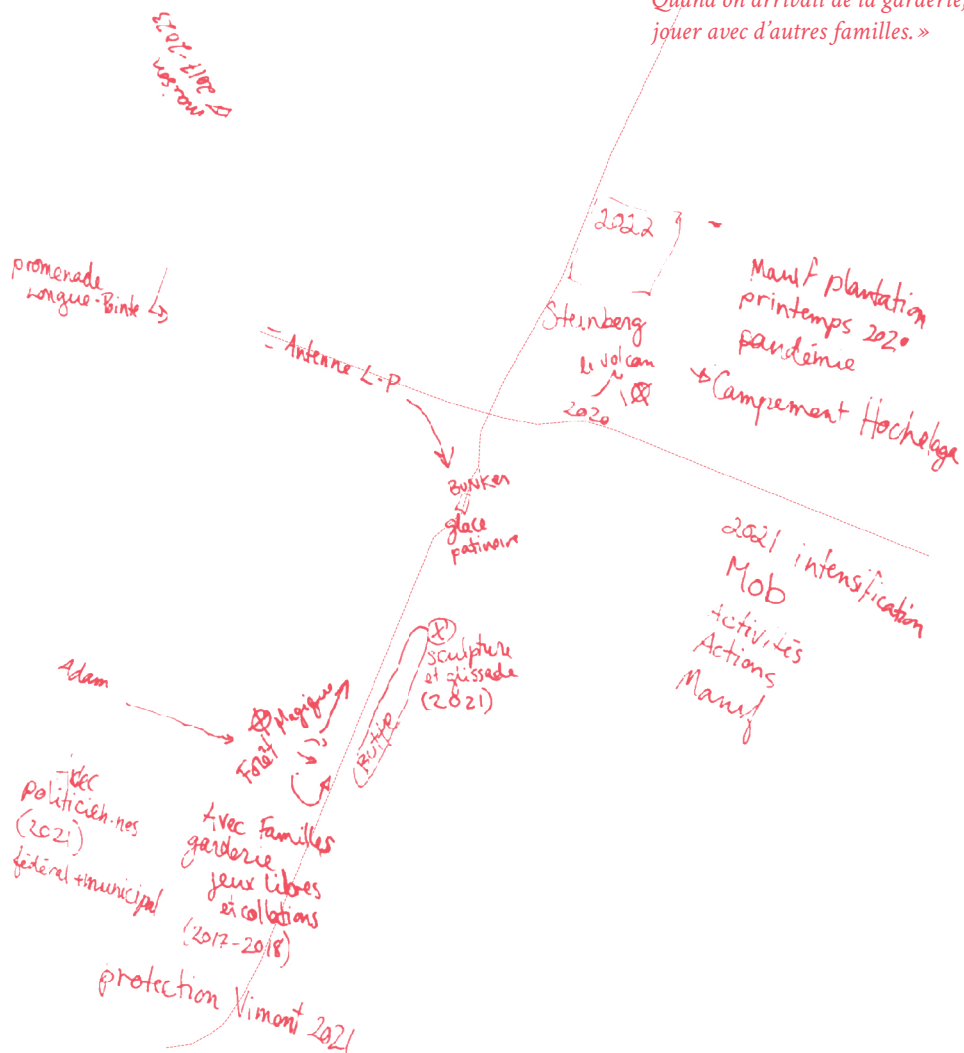 Quand on arrivait de la garderie,
jouer avec d'autres familles. »
maison
2017-2023
2022
promenade
Longue-Pointe
Steinberg
Manif plantation
printemps 2020
pandémie
Antenne L-P
le volcan
2020
Campement Hochelaga
BUNKER
glace
patinoire
2021 intensification
Mob
Activités
Actions
Manif
sculpture
et glissade
(2021)
Adam
Forêt magique
Butte
Avec
politicien·nes
(2021)
fédéral + municipal
Avec Familles
garderie
jeux libres
et collations
(2017-2018)
protection Vimont 2021